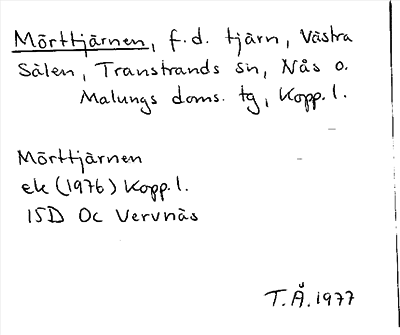 Mörttjärnen, f.d. tjärn, Västra
Sälen, Transtrands sn, Nås o.
Malungs doms. tg, Kopp. l.
Mörttjärnen
ek (1976) Kopp. l.
15D Oc Vervnäs
T.Å. 1977